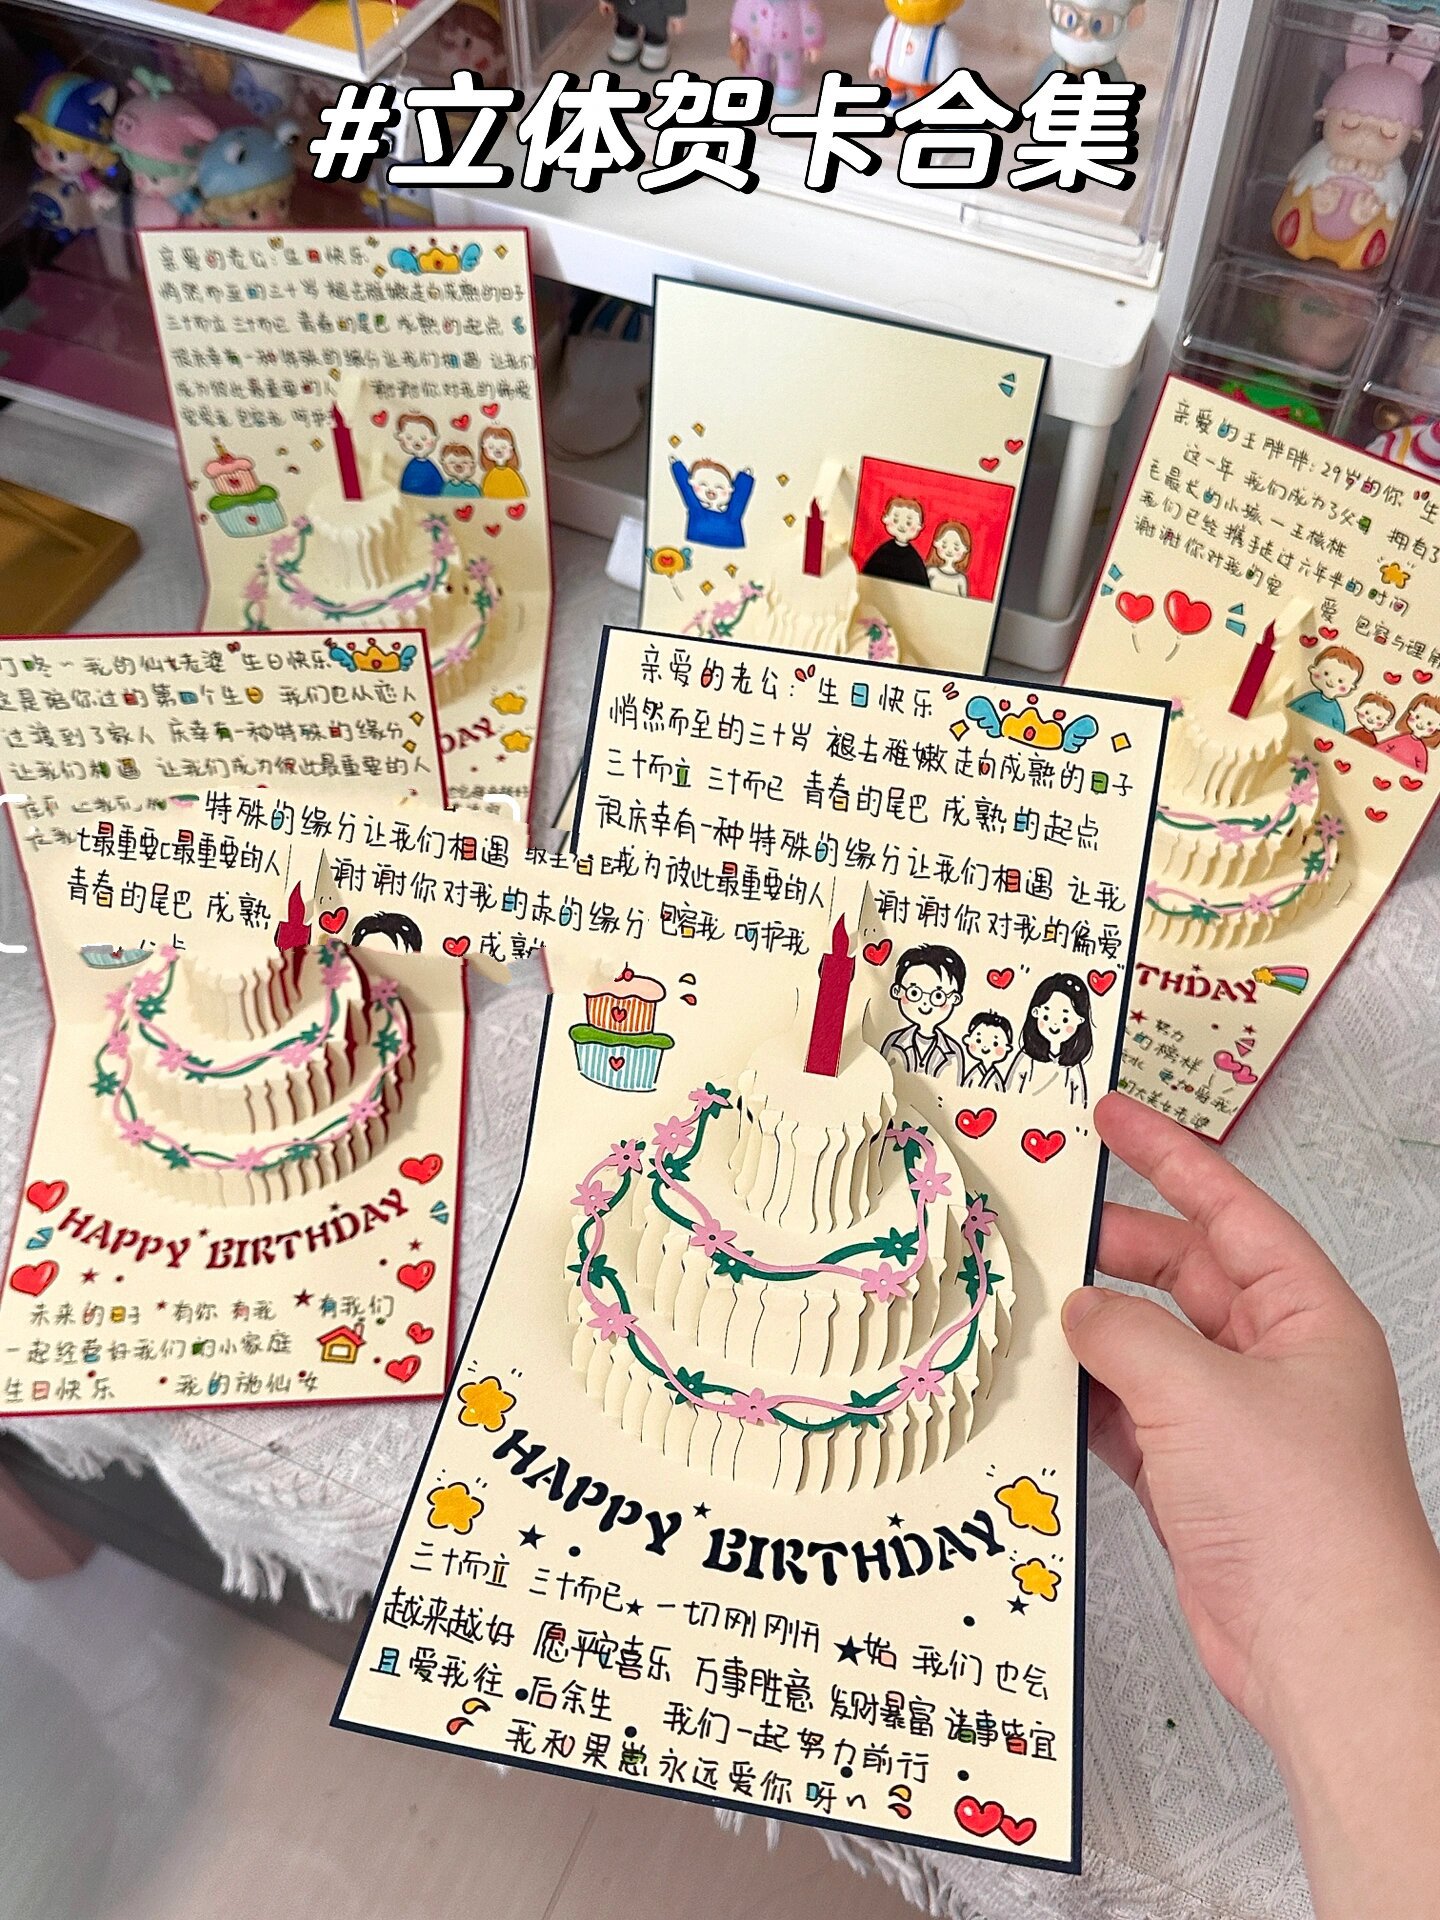 #立体贺卡合集
亲爱的老公："生日快乐"
悄然而至的三十岁 褪去稚嫩走向成熟的日子
三十而立 三十而已 青春的尾巴 成熟的起点
很庆幸有一种特殊的缘分让我们相遇 让我们
成为彼此最重要的人 谢谢你对我的偏爱
亲爱的王胖胖：29岁的你"生
这一年 我们成为了父母 拥有了
我们已经携手走过六年半的时间
谢谢你对我的宠爱 包容与理解
THDAY
努力
的榜样
的大美女老婆
DAY
我的仙女老婆"生日快乐
这是陪你过的第四个生日 我们也从恋人
过渡到了家人 庆幸有一种特殊的缘分
让我们相遇 让我们成为彼此最重要的人
特殊的缘分让我们相遇
最重要的人
青春的尾巴 成熟
谢谢你对我的
的缘分
HAPPY BIRTHDAY
未来的日子 有你 有我 有我们
一起经营好我们的小家庭
生日快乐 我的施仙女
亲爱的老公："生日快乐"
悄然而至的三十岁 褪去稚嫩走向成熟的日子
三十而立 三十而已 青春的尾巴 成熟的起点
很庆幸有一种特殊的缘分让我们相遇 让我
成为彼此最重要的人 谢谢你对我的偏爱
包容我 呵护我
HAPPY BIRTHDAY
三十而立 三十而已 一切刚刚开始 我们也会
越来越好 愿平安喜乐 万事胜意 发财暴富 诸事皆宜
且爱我往后余生 我们一起努力前行
我和果崽永远爱你呀~